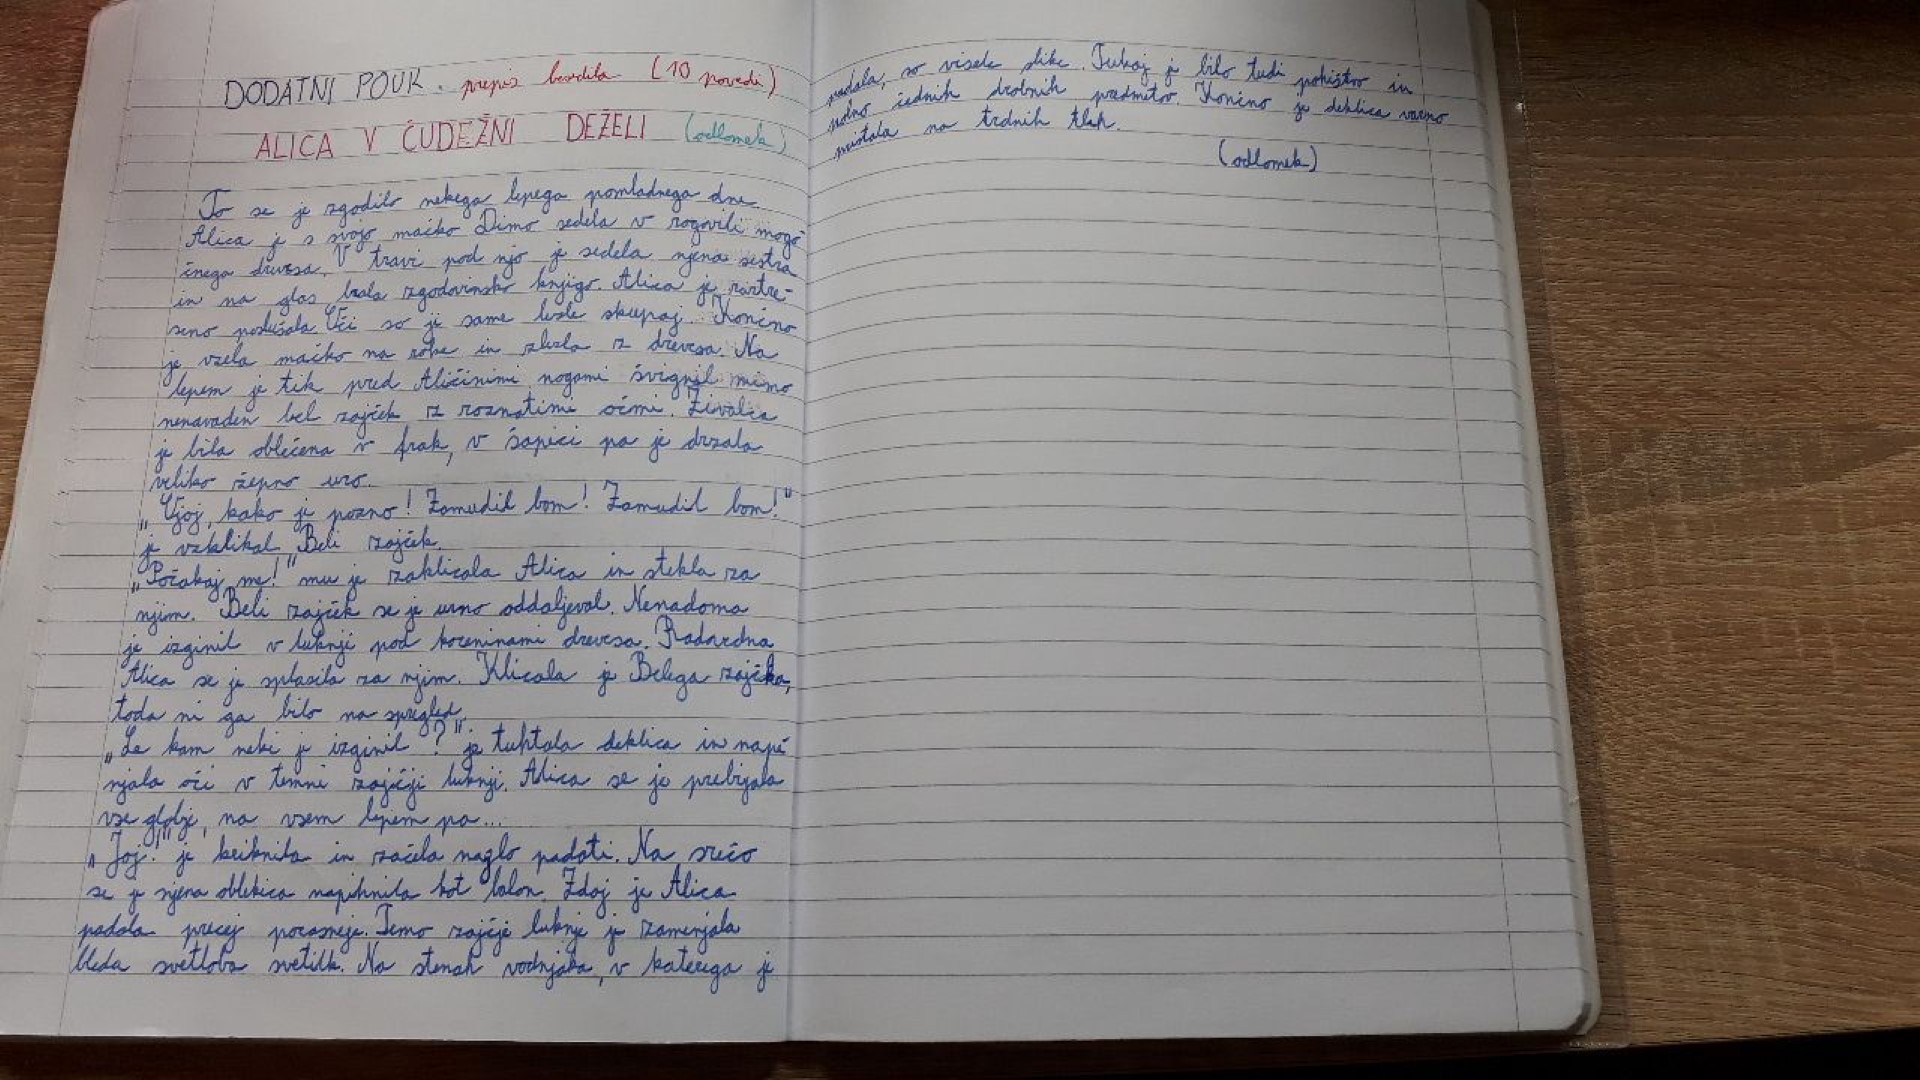 DODATNI POUK. prepis besedila (10 povedi)
ALICA V ČUDEŽNI DEŽELI (odlomek)
To se je zgodilo nekega lepega pomladnega dne.
Alica je s svojo mačko Dimo sedela v rogovili mogo
čnega drevesa. V travi pod njo je sedela njena sestra
in na glas brala zgodovinsko knjigo. Alica je raztre-
seno poslušala. Oči so ji same lezle skupaj. Končno
je vzela mačko na roke in zlezla z drevesa. Na
lepem je tik pred Aličinimi nogami švignil mimo
nenavaden bel zajček z rožnatimi očmi. Živalca
je bila oblečena v frak, v šapici pa je držala
veliko žepno uro.
"Ojoj, kako je pozno! Zamudil bom! Zamudil bom!"
je vzklikal Beli zajček.
"Počakaj me!" mu je zaklicala Alica in stekla za
njim. Beli zajček se je urno oddaljeval. Nenadoma
je izginil v luknji pod koreninami drevesa. Radovedna
Alica se je splazila za njim. Klicala je Belega zajčka,
toda ni ga bilo na spregled.
"Le kam neki je izginil?" je tuhtala deklica in nape
njala oči v temni zajčji luknji. Alica se je prebijala
vse globje, na vsem lepem pa...
"Joj!" je kriknila in začela naglo padati. Na srečo
se je njena oblekica napihnila kot balon. Zdaj je Alica
padala precej počasneje. Temo zajčje luknje je zamenjala
bleda svetloba svetilk. Na stenah vodnjaka, v katerega je
padala, so visele slike. Tukaj je bilo tudi pohištvo in
polno čednih drobnih predmetov. Končno je deklica varno
pristala na trdnih tleh.
(odlomek)